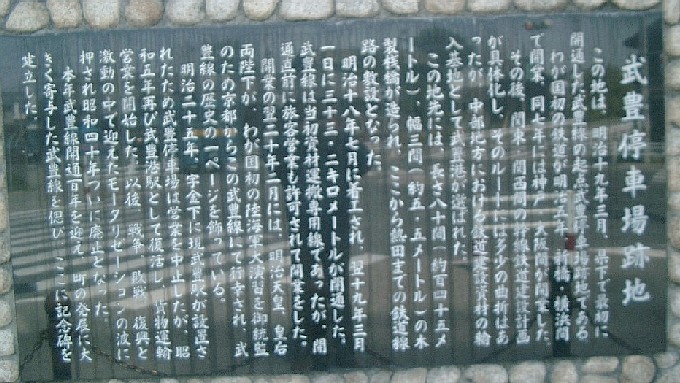 武豊停車場跡地
この地は、明治十九年三月、県下で最初に
開通した武豊線の起点武豊停車場跡地である
わが国初の鉄道が明治五年、新橋・横浜間
で開業、同七年には神戸・大阪間が開業した
その後、関東・関西間の幹線鉄道建設計画
が具体化し、そのルートには多少の曲折はあ
ったが、中部地方における鉄道建設資材の輸
入基地として武豊港が選ばれた
この地先には、長さ八十間(約百四十五メ
ートル)、幅三間(約五・五メートル)の木
製桟橋が造られ、ここから熱田までの鉄道線
路の敷設となった
明治十八年七月に着工され、翌十九年三月
一日に三十三・二キロメートルが開通した。
武豊線は当初資材運搬専用線であったが、開
通直前に旅客営業も許可されて開業をした。
開業の翌二十年二月には、明治天皇、皇后
両陛下が、わが国初の陸海軍大演習を御統監
のため京都からこの武豊線にて行幸され、武
豊線の歴史の一ページを飾っている。
明治二十五年、字金下に現武豊駅が設置さ
れたため武豊停車場は営業を中止したが、昭
和五年再び武豊港駅として復活し、貨物運輸
営業を開始した。以後、戦争、敗戦、復興と
激動の中で迎えたモータリゼーションの波に
押され昭和四十年ついに廃止となった。
本年武豊線開通百年を迎え、町の発展に大
きく寄与した武豊線を偲び、ここに記念碑を
建立した。